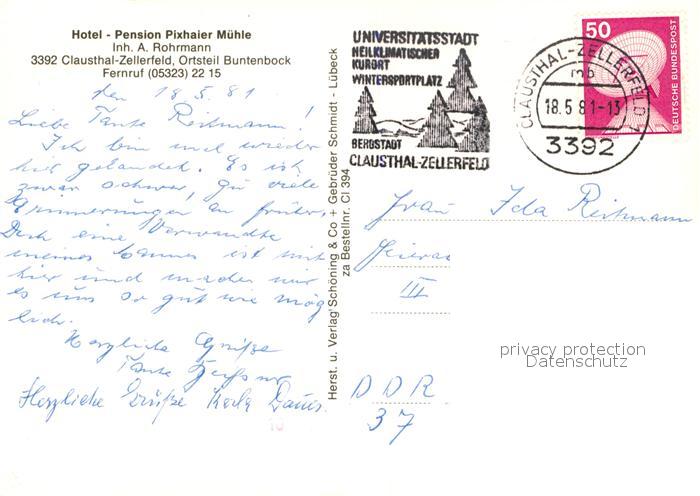 Hotel - Pension Pixhaier Mühle
Inh. A. Rohrmann
3392 Clausthal-Zellerfeld, Ortsteil Buntenbock
Fernruf (05323) 22 15
den 18.5.81
Liebe Tante Reitmann!
Ich bin mal wieder
hier gelandet. Es ist
zwar schwer, zu viele
Erinnerungen an früher,
Doch eine Verwandte
meines Mannes ist mit
hier und machen wir
es uns so gut wie mög
lich.
Herzliche Grüße
Tante
Herzliche Grüße Karla
Herst. u. Verlag Schöning & Co + Gebrüder Schmidt - Lübeck
za Bestellnr. Cl 394
UNIVERSITÄTSSTADT
HEILKLIMATISCHER
KURORT
WINTERSPORTPLATZ
BERGSTADT
CLAUSTHAL-ZELLERFELD
CLAUSTHAL-ZELLERFELD 1
mb
18.5.81-13
3392
50
DEUTSCHE BUNDESPOST
Frau Ida Reitmann
III
DDR
37
privacy protection
Datenschutz